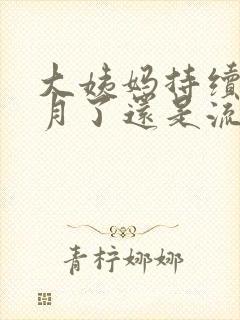 大姨妈持续
月了還是流
青柠娜娜